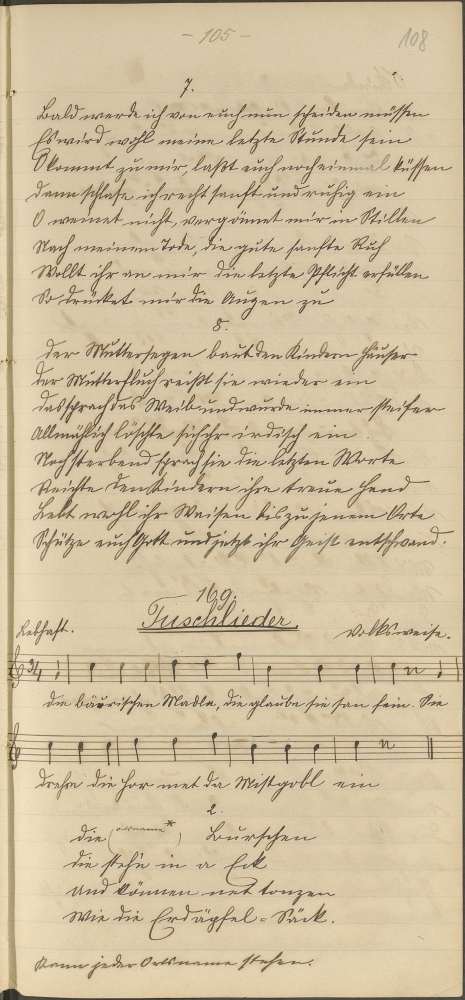 - 105 -
108
7.
Bald werde ich von euch nun scheiden müssen
Es wird wohl meine letzte Stunde sein
O kommt zu mir, laßt euch noch einmal küssen
dann schlafe ich recht sanft und ruhig ein
O weinet nicht, vergönnet mir im Stillen
Nach meinem Tode, die gute sanfte Ruh
Wollt ihr an mir die letzte Pflicht erfüllen
So drücket mir die Augen zu
8.
Der Muttersegen baut den Kindern Häuser
Der Mutterfluch reißt sie wieder ein
das sprach das Weib und wurde immer steifer
Allmählich löschte sich ihr irdisch ein
Noch sterbend sprach sie die letzten Worte
Reichte den Kindern ihre treue Hand
Lebt wohl ihr Waisen bis zu jenem Orte
Schütze euch Gott und jetzt ihr Geist entschwand.
169.
Tuschlieder.
Lebhaft.
Volksweise.
3/4
die bäurischen Madla, die glaube sie san fein. Sie
drehn die Hor met da Mistgobl ein
2.
die (Ortsname*) Burschen
die stehn in a Eck
und können net tonzen
wie die Erdäpfel-Säck.
Kann jeder Ortsname stehen.